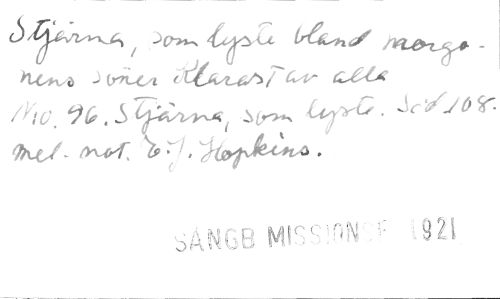 Stjärna, som lyste bland morgo-
nens söner klarast av alla
No. 96. Stjärna, som lyste. Sid 108.
mel. not. E.J. Hopkins.
SÅNGB MISSIONSF 1921